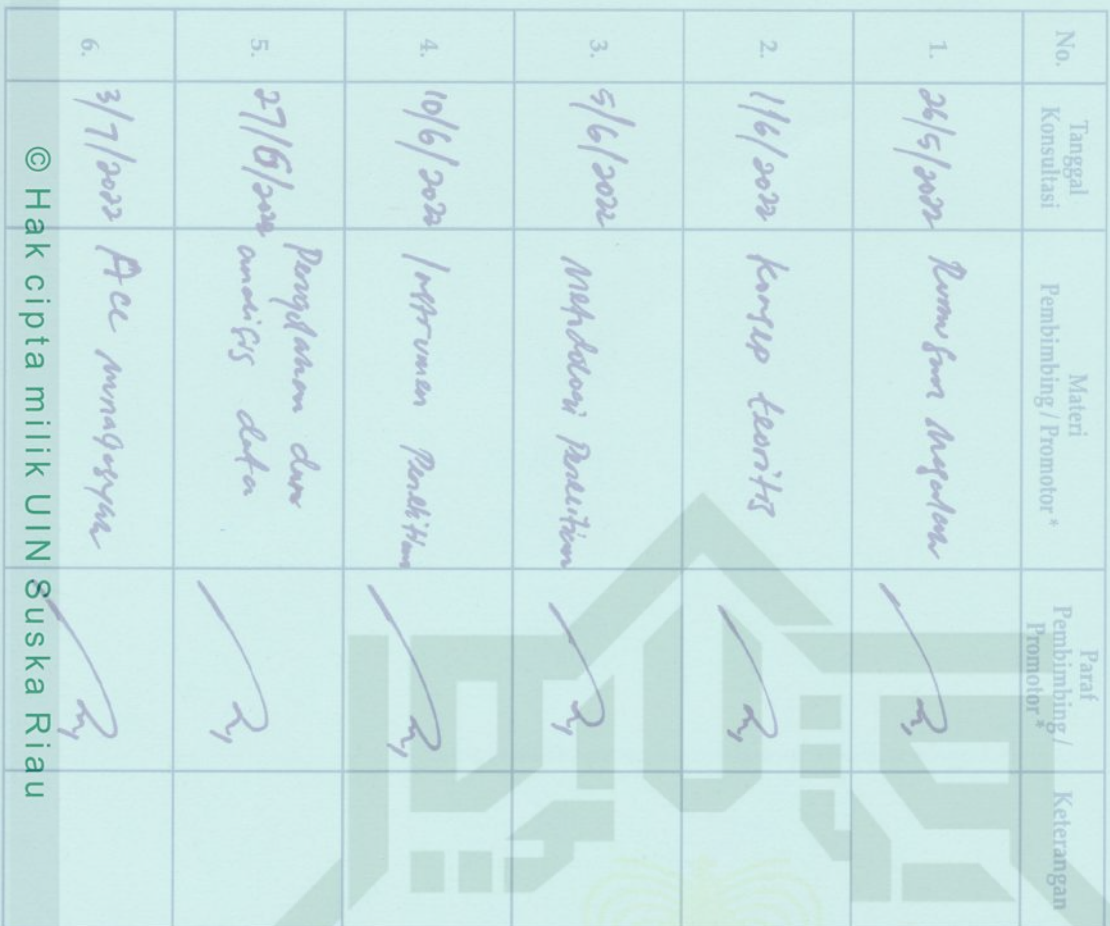 No.
Tanggal
Konsultasi
Materi
Pembimbing / Promotor *
Paraf
Pembimbing /
Promotor *
Keterangan
1.
26/5/2022
2.
1/6/2022
Konsep teoritis
3.
5/6/2022
Metodologi Penelitian
4.
10/6/2022
Instrumen Penelitian
5.
Pengolahan dan
analisis data
6.
3/7/2022
Acc
© Hak cipta milik UIN Suska Riau